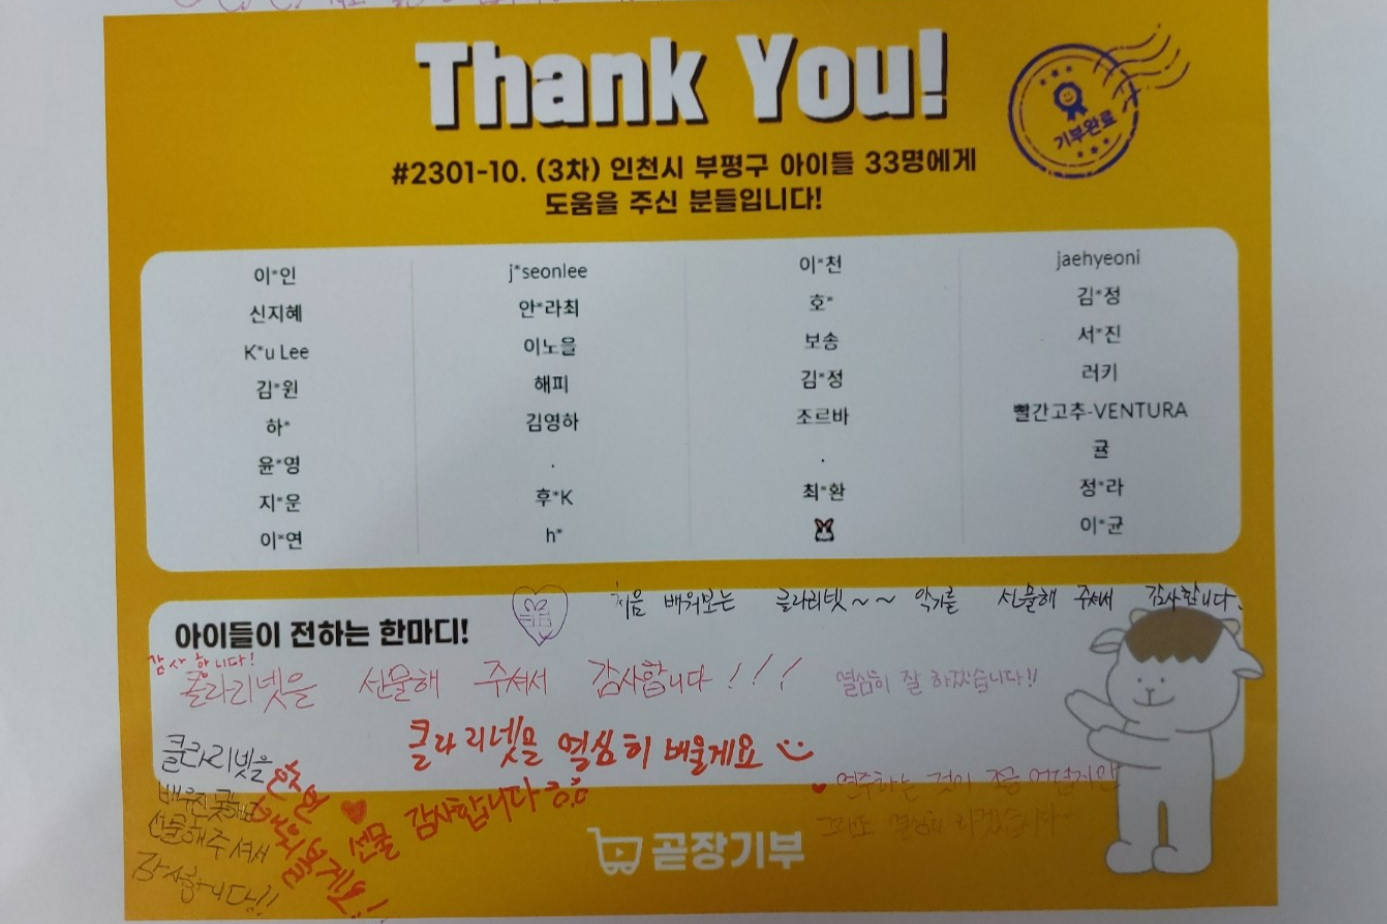 Thank You!
기부완료
#2301-10. (3차) 인천시 부평구 아이들 33명에게
도움을 주신 분들입니다!
이*인 j*seonlee 이*천 jaehyeoni
신지혜 안*라최 호* 김*정
K*u Lee 이노을 보송 서*진
김*원 해피 김*정 러키
하* 김영하 조르바 빨간고추-VENTURA
윤*영 . . 귤
지*운 후*K 최*환 정*라
이*연 h* 이*균
처음 배워보는 클라리넷~~ 악기를 선물해 주셔서 감사합니다.
아이들이 전하는 한마디!
감사합니다!
클라리넷을 선물해 주셔서 감사합니다!!!
열심히 잘 하겠습니다!!
클라리넷을 열심히 배울게요
클라리넷을
배우진 못해도
선물해주셔서
감사합니다!!
선물 감사합니다
연주하는 것이 조금 어렵지만
그래도 열심히 하겠습니다~
곧장기부